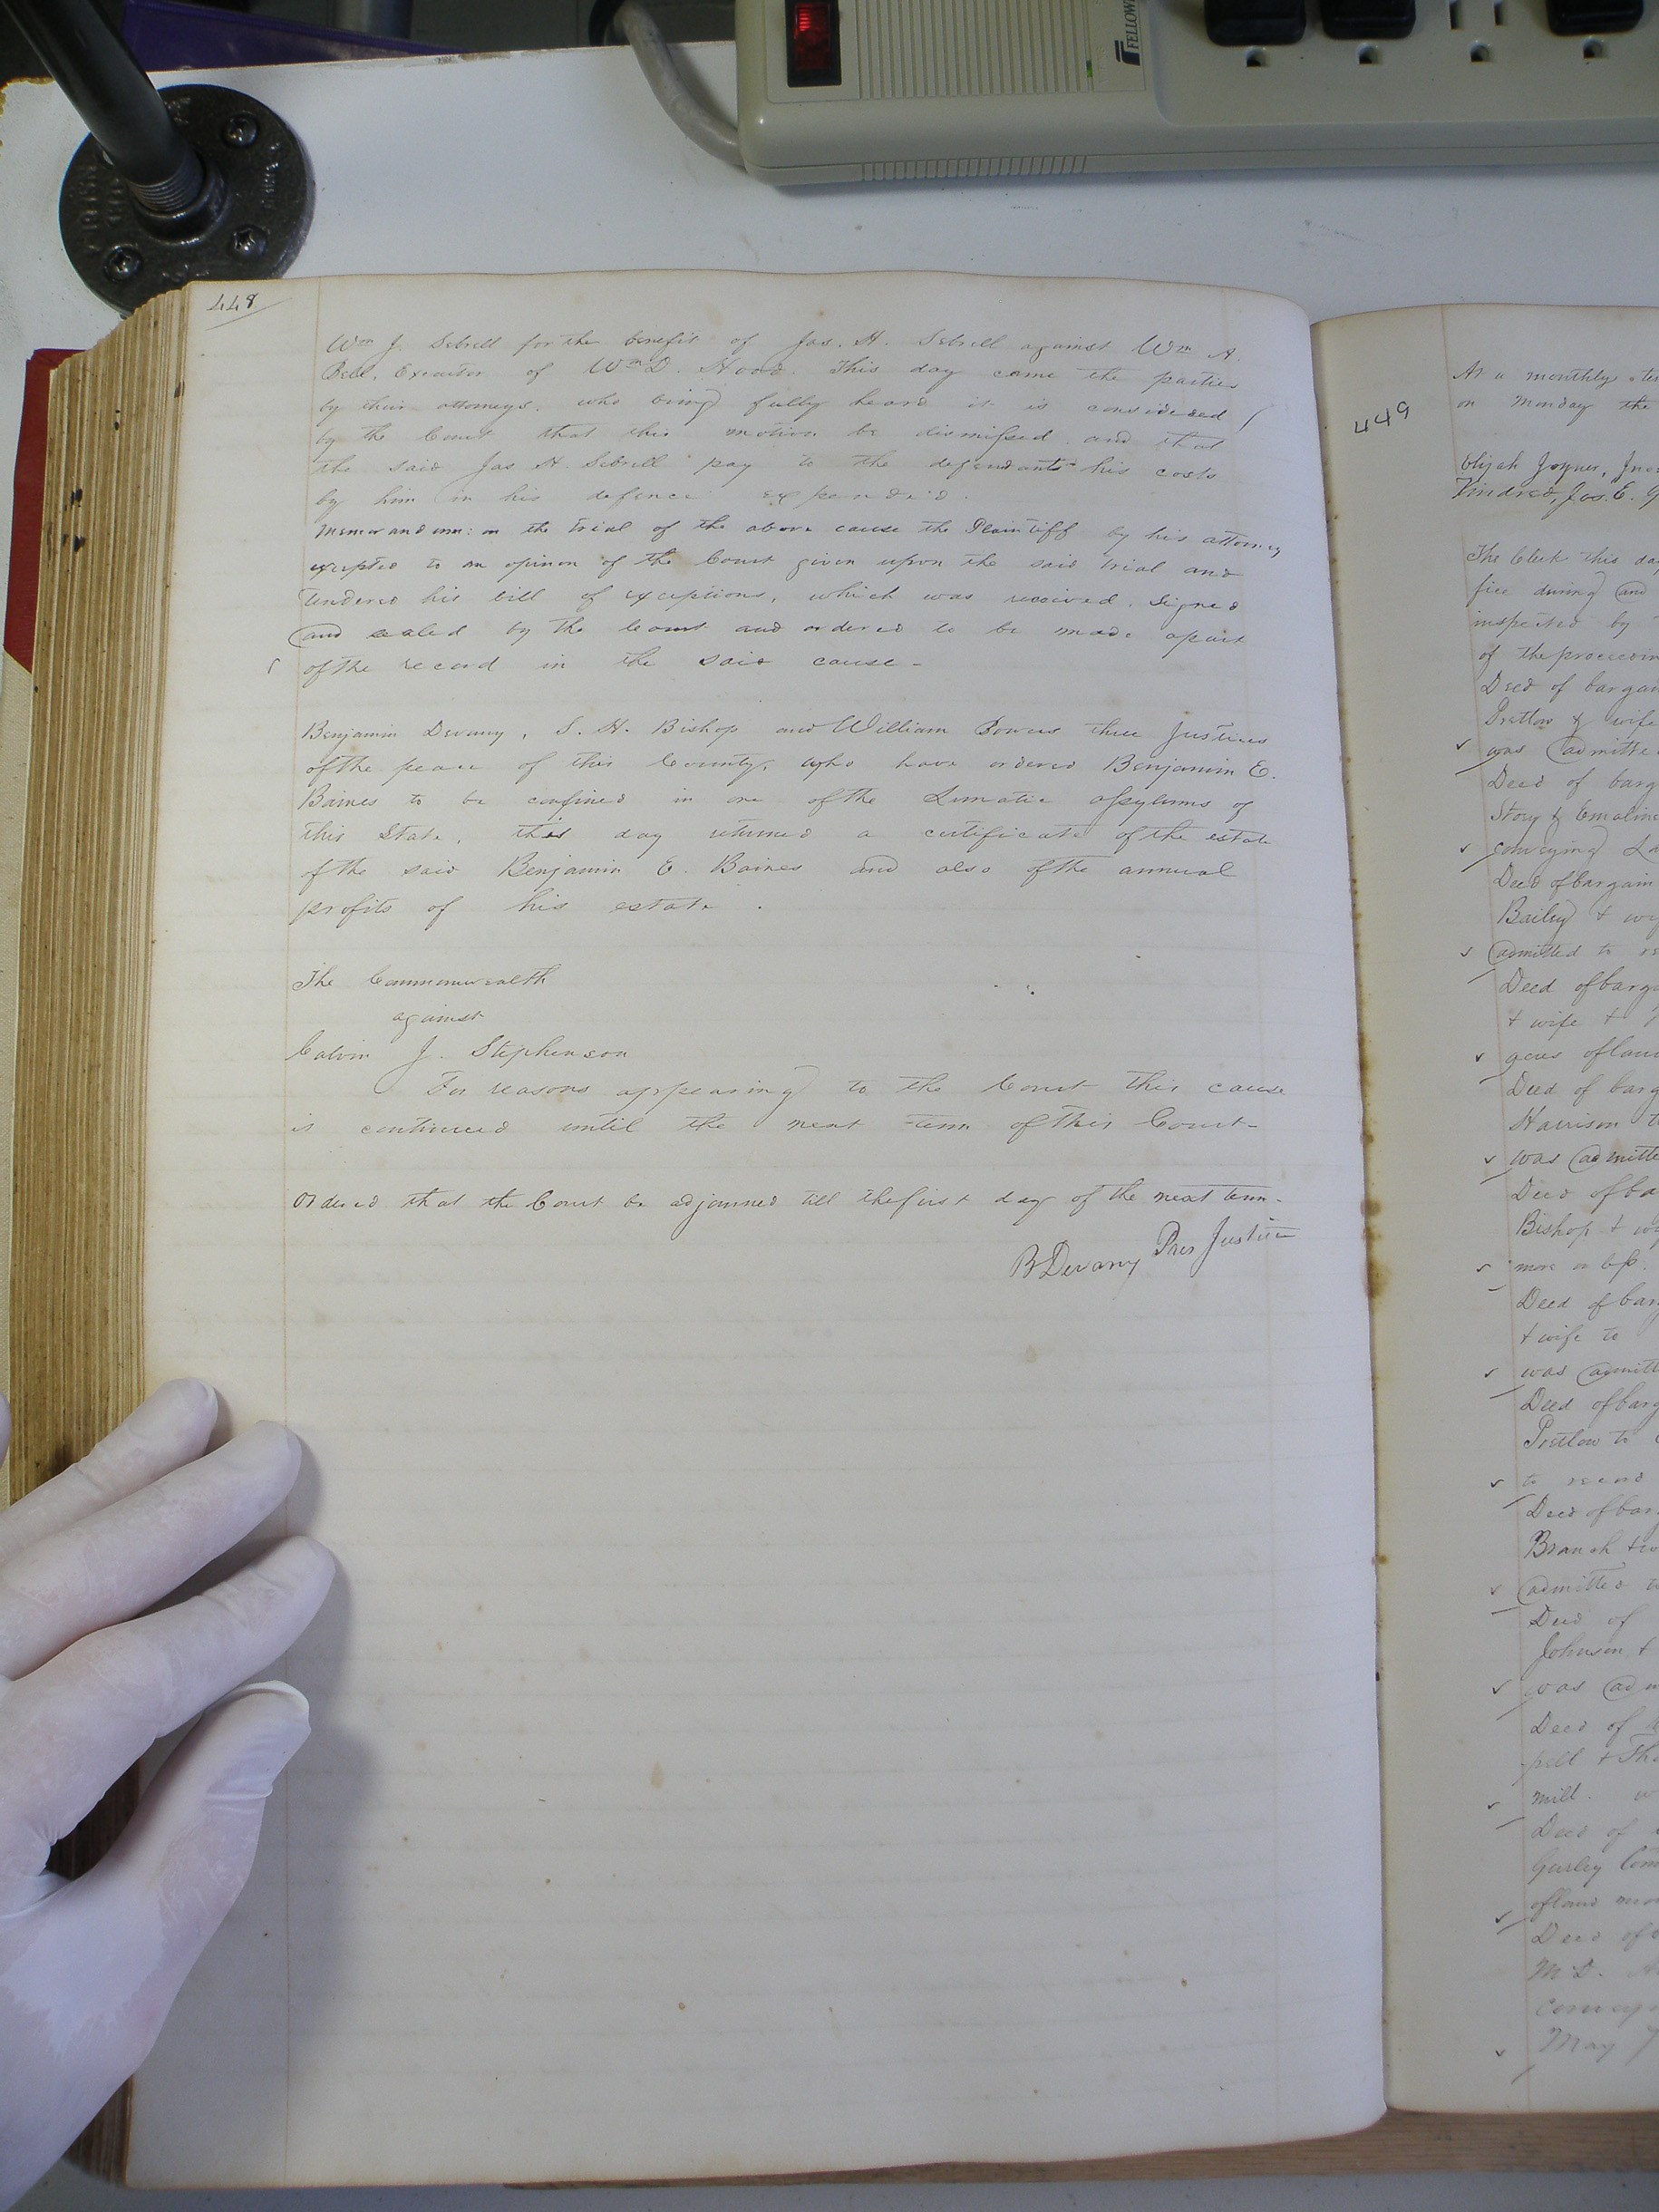 FELLOW
448
Wm J. Sebrell for the benefit of Jas. H. Sebrell against Wm A.
Bell, Executor of Wm D. Hood. This day came the parties
by their attorneys, who being fully heard it is considered
by the Court that this motion be dismissed and that
the said Jas H. Sebrell pay to the defendant his costs
by him in his defence expended.
Memorandum: on the trial of the above cause the Plaintiff by his attorney
excepted to an opinion of the Court given upon the said trial and
tendered his bill of exceptions, which was received, signed
and sealed by the Court and ordered to be made apart
of the record in the said cause -
Benjamin Devany, S. H. Bishop and William Bowers three Justices
of the peace of this County, who have ordered Benjamin E.
Baines to be confined in one of the Lunatic asylums of
this State, this day returned a certificate of the estate
of the said Benjamin E. Baines and also of the annual
profits of his estate.
The Commonwealth
against
Calvin J. Stephenson
For reasons appearing to the Court this cause
is continued until the next term of this Court-
Ordered that the Court be adjourned till the first day of the next term-
B Devany Pres Justice
449
At a monthly
on Monday the
Elijah Joyner,
Kindred, Jas. E.
The Clerk this
fice during and
inspected by
of the
Deed of
Pretlow & wife
was
Deed of
Story & Emaline
conveying
Deed of bargain
Bailey &
admitted to
Deed of
& wife &
acres of
Deed of
Harrison
was
Deed of
Bishop &
more or less.
Deed of
& wife to
was
Deed of
Pretlow to
to record
Deed of
Branch
admitted
Deed of
Johnson &
was
Deed of
pell &
mill.
Deed of
Gurley
of land
Deed
M. D.
May